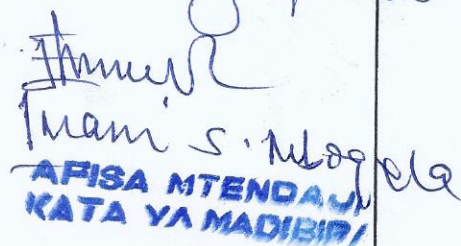 Imani S. Mtogela
AFISA MTENDAJI
KATA YA MADIBIRA